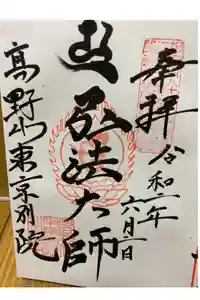 奉拝
令和二年
六月一日
弘法大師
高野山東京別院